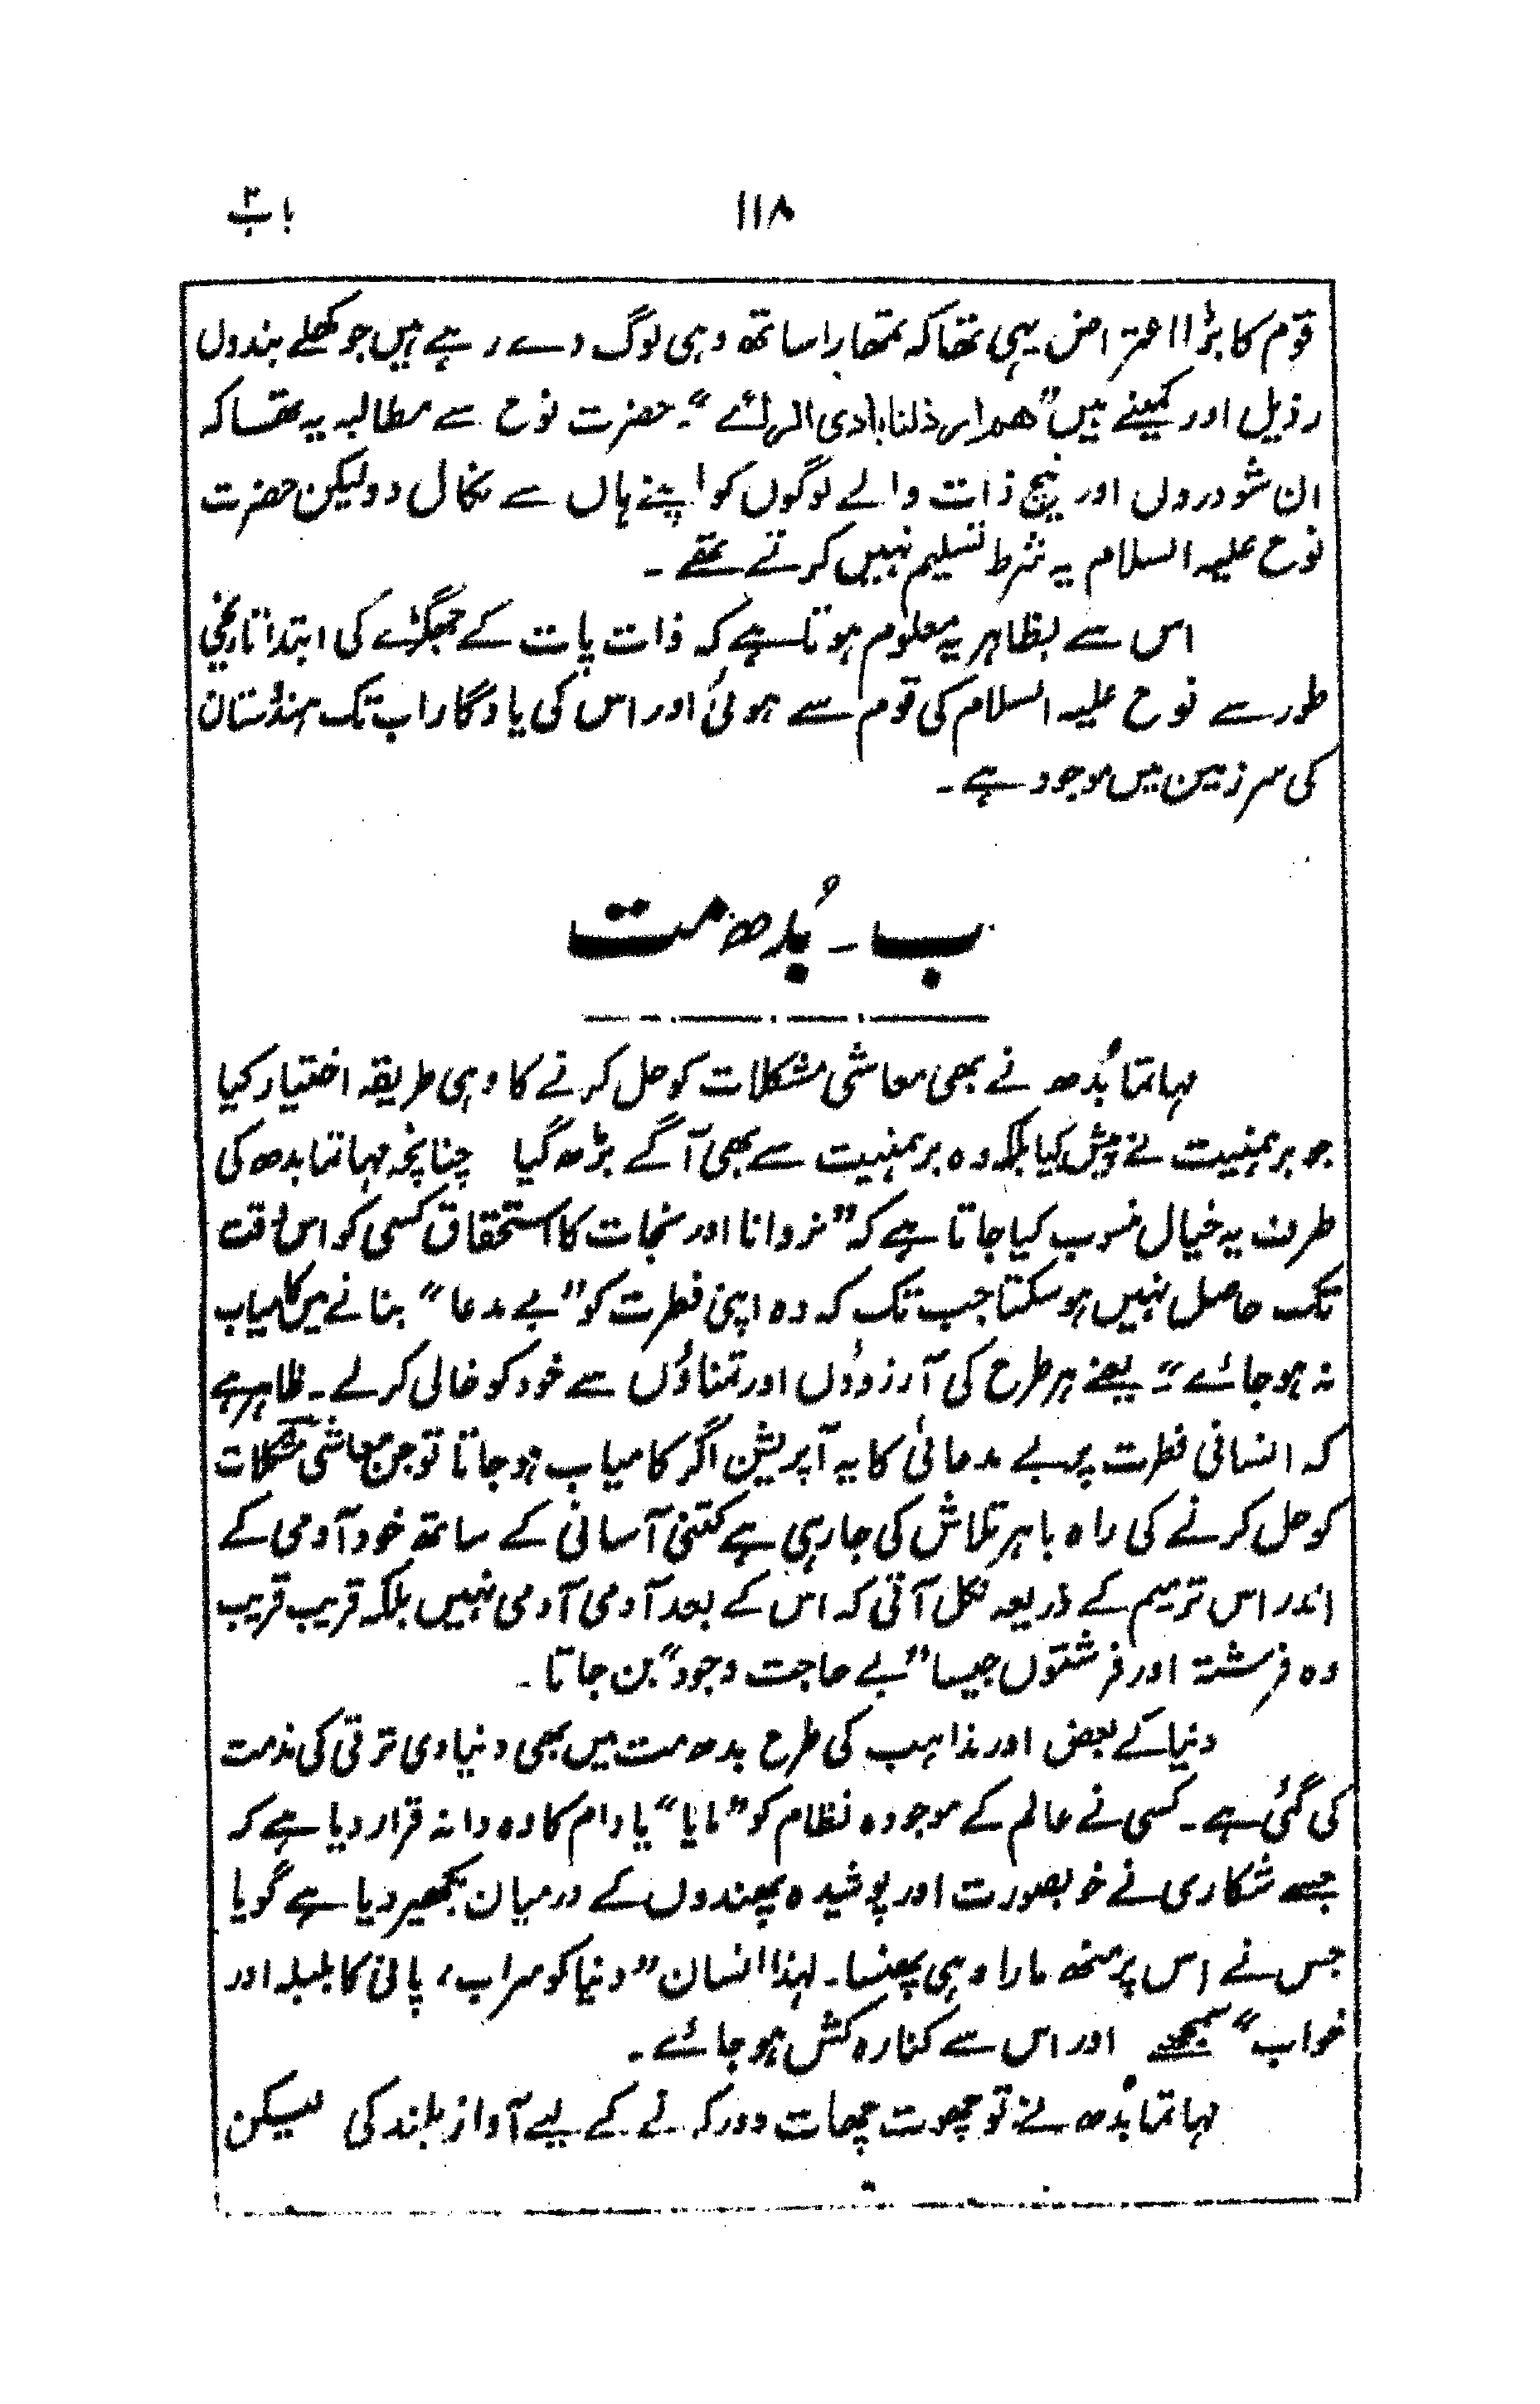 ۱۱۸
باب ۲
قوم کا بڑا اعتراض یہی تھا کہ تمھارا ساتھ وہی لوگ دے رہے ہیں جو کھلے بندوں
رذیل اور کمینے ہیں "ھم اراذلنا بادی الرائے"۔ حضرت نوح سے مطالبہ یہ تھا کہ
ان شودروں اور نیچ ذات والے لوگوں کو اپنے ہاں سے نکال دو لیکن حضرت
نوح علیہ السلام یہ شرط تسلیم نہیں کرتے تھے ۔
اس سے بظاہر یہ معلوم ہوتا ہے کہ ذات پات کے جھگڑے کی ابتدا تاریخی
طور سے نوح علیہ السلام کی قوم سے ہوئی اور اس کی یادگار اب تک ہندُستان
کی سرزمین میں موجود ہے ۔
ب ۔ بُدھ مت
مہاتما بُدھ نے بھی معاشی مشکلات کو حل کرنے کا وہی طریقہ اختیار کیا
جو برہمنیت نے پیش کیا بلکہ وہ برہمنیت سے بھی آگے بڑھ گیا چنانچہ مہاتما بدھ کی
طرف یہ خیال منسوب کیا جاتا ہے کہ "نروانا اور نجات کا استحقاق کسی کو اس وقت
تک حاصل نہیں ہو سکتا جب تک کہ وہ اپنی فطرت کو "بے مدعا" بنانے میں کامیاب
نہ ہو جائے"۔ یعنے ہر طرح کی آرزوؤں اور تمناؤں سے خود کو خالی کر لے ۔ ظاہر ہے
کہ انسانی فطرت پر بے مدعائی کا یہ آپریشن اگر کامیاب ہو جاتا تو جن معاشی مشکلات
کو حل کرنے کی راہ باہر تلاش کی جا رہی ہے کتنی آسانی کے ساتھ خود آدمی کے
اندر اس ترمیم کے ذریعہ نکل آتی کہ اس کے بعد آدمی آدمی نہیں بلکہ قریب قریب
وہ فرشتہ اور فرشتوں جیسا "بے حاجت وجود" بن جاتا ۔
دنیا کے بعض اور مذاہب کی طرح بدھ مت میں بھی دنیاوی ترقی کی مذمت
کی گئی ہے ۔ کسی نے عالم کے موجودہ نظام کو "مایا" یا دام کا وہ دانہ قرار دیا ہے کہ
جسے شکاری نے خوبصورت اور پوشیدہ پھندوں کے درمیان بکھیر دیا ہے گویا
جس نے اس پر منھ مارا وہی پھنسا ۔ لہذا انسان "دنیا کو سراب، پانی کا بلبلہ اور
خواب" سمجھے اور اس سے کنارہ کش ہو جائے ۔
مہاتما بُدھ نے تو چھوت چھات دور کرنے کے لیے آواز بلند کی لیکن